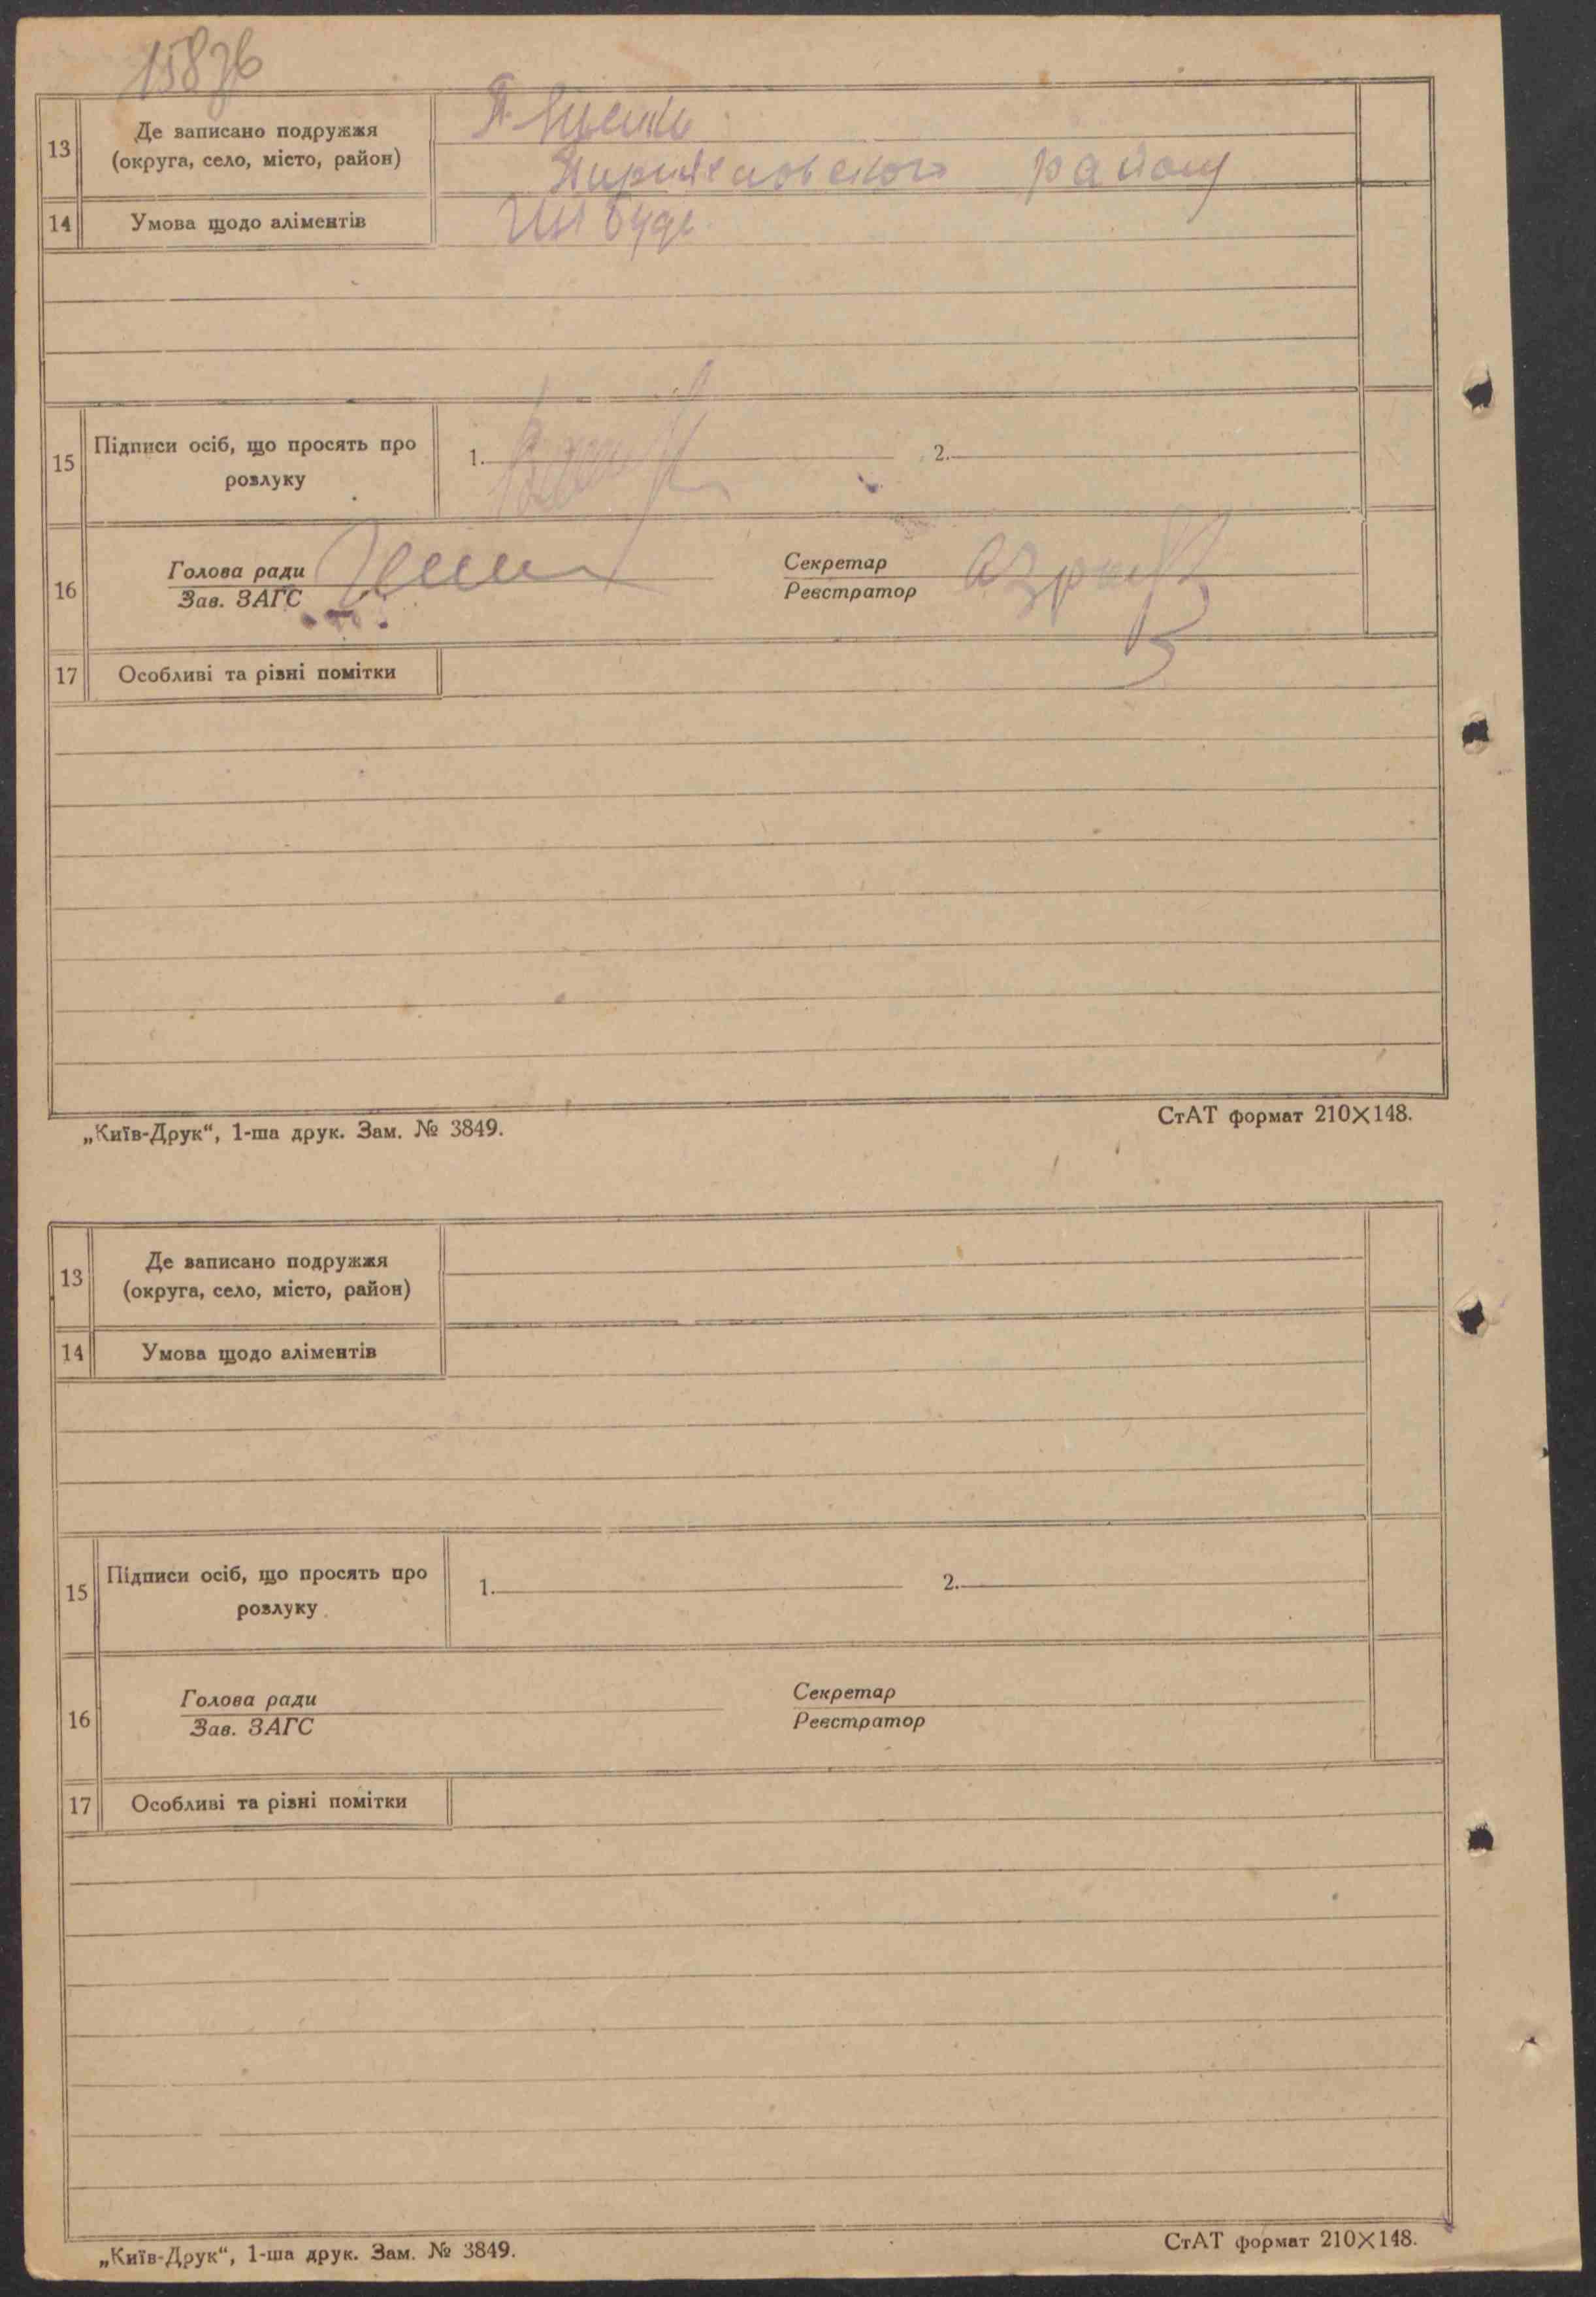 13
Де записано подружжя
(округа, село, місто, район)
14
Умова щодо аліментів
району
15
Підписи осіб, що просять про
розлуку
1.
2.
16
Голова ради
Зав. ЗАГС
Секретар
Реєстратор
17
Особливі та різні помітки
„Київ-Друк“, 1-ша друк. Зам. № 3849.
СтАТ формат 210×148.
13
Де записано подружжя
(округа, село, місто, район)
14
Умова щодо аліментів
15
Підписи осіб, що просять про
розлуку
1.
2.
16
Голова ради
Зав. ЗАГС
Секретар
Реєстратор
17
Особливі та різні помітки
„Київ-Друк“, 1-ша друк. Зам. № 3849.
СтАТ формат 210×148.